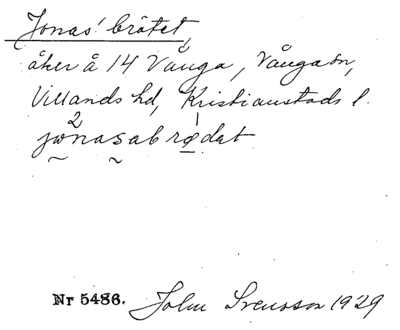 Jonas' brötet,
åker å 14 Vånga, Vångasn,
Villands hd, Kristianstads l.
jωnasabrødet
Nr 5486. John Svensson 1929